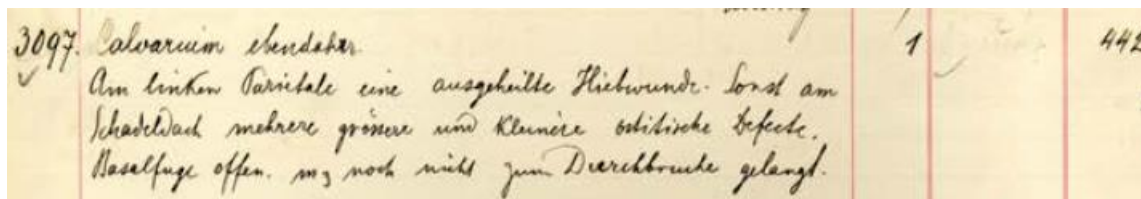 3097. Calvarium ebendaher. 1 442
Am linken Parietale eine ausgeheilte Hiebwunde. Sonst am
Schädeldach mehrere grössere und kleinere ostitische Defecte.
Basalfuge offen. m3 noch nicht zum Durchbruche gelangt.